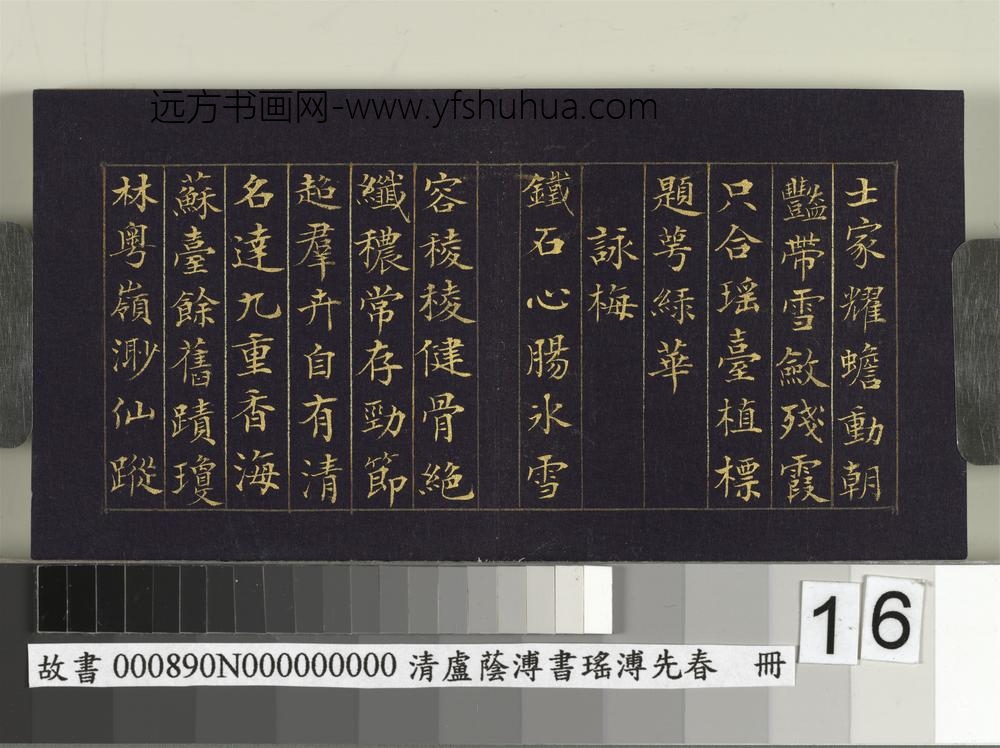 远方书画网-www.yfshuhua.com
士家耀蟾動朝
豔帶雪斂殘霞
只合瑶臺植標
題萼緑華
詠梅
鐵石心腸氷雪
容稜稜健骨絕
纖穠常存勁節
超羣卉自有清
名達九重香海
蘇臺餘舊蹟瓊
林粤嶺渺仙蹤
16
故書 000890N000000000 清盧蔭溥書瑤溥先春 冊